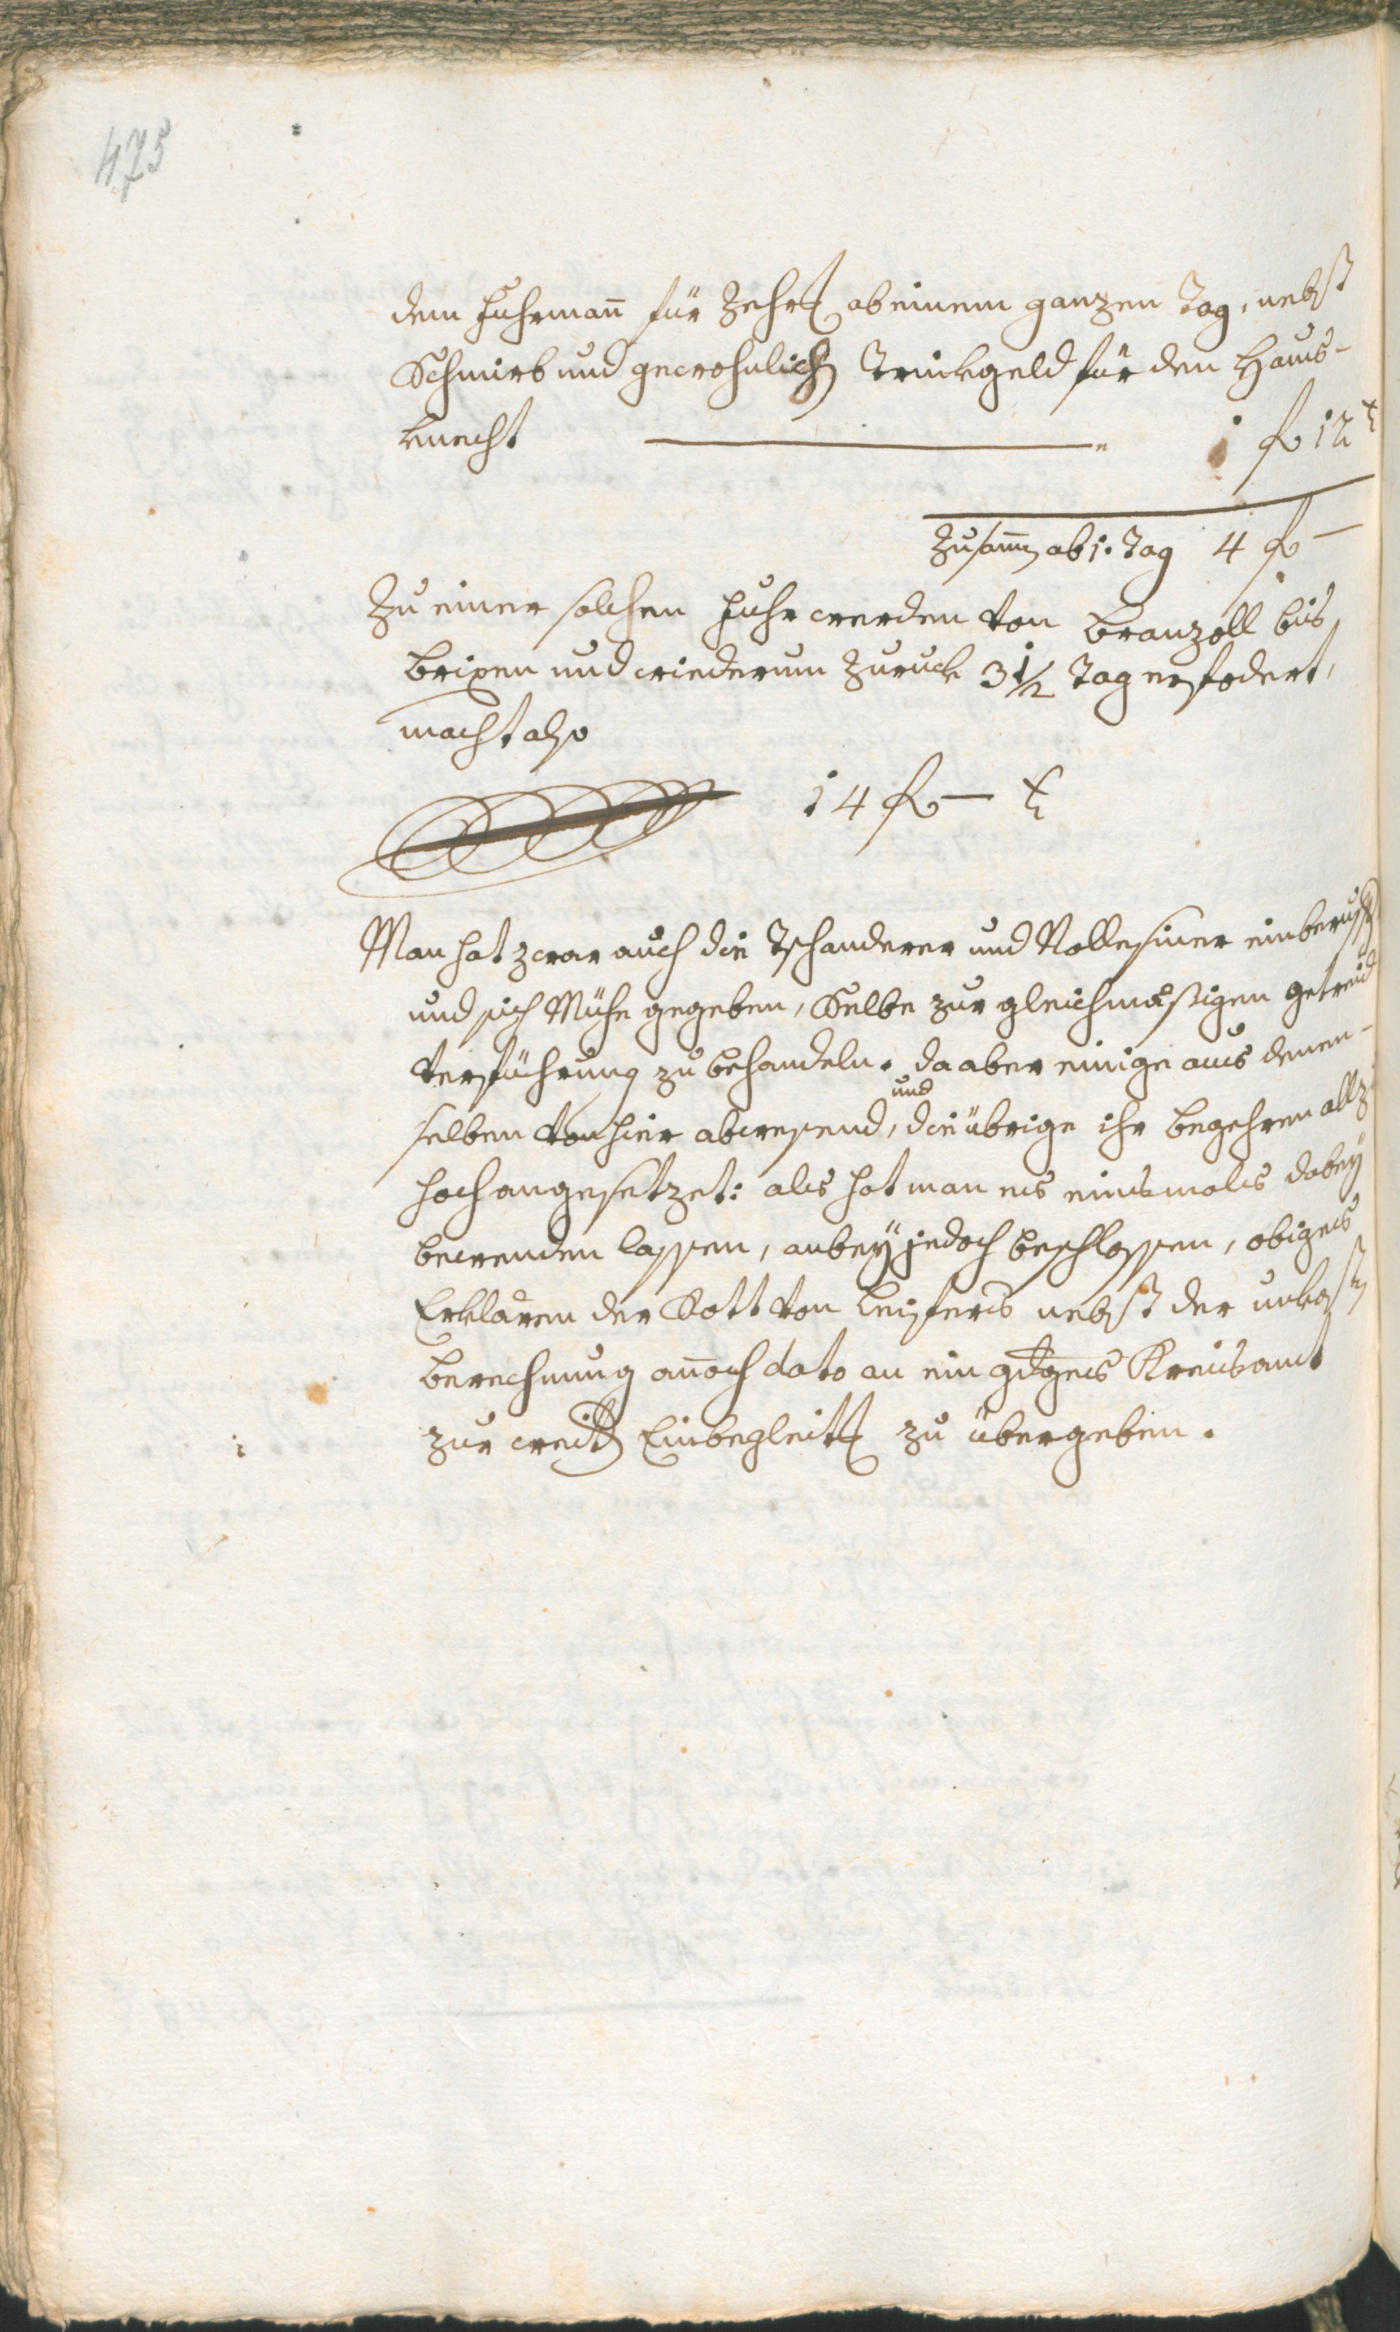 475
dem Fuhrmañ für Zehr[ung] ab einem ganzen Tag, nebst
Schmirb und gewohnlich[en] Trinkgeld für den Haus-
knecht ——— 1 f 12 x
Zusam̄[en] ab 1. Tag 4 f –
Zu einer solchen Fuhr werden von Branzoll bis
Brixen und wiederum zuruck 3 1/2 Tag erfodert,
macht also
14 f – x
Man hat zwar auch die Tschanderer und Nollesiner einberuff[en]
und sich Mühe gegeben, Selbe zur gleichmäßigen getreid
verführung zu behandeln. da aber einige aus denen-
selben von hier abwesend, und die übrige ihr begehren allz[u]
hoch angesetzet: als hat man es einsmals dabey
bewenden lassen, anbey jedoch beschlossen, obiges
Erklären der Rott von Leifers nebst der unkost[en]
berechnung añoch dato an ein gdges Kreisamt
zur weit[eren] Einbegleit[ung] zu übergeben.